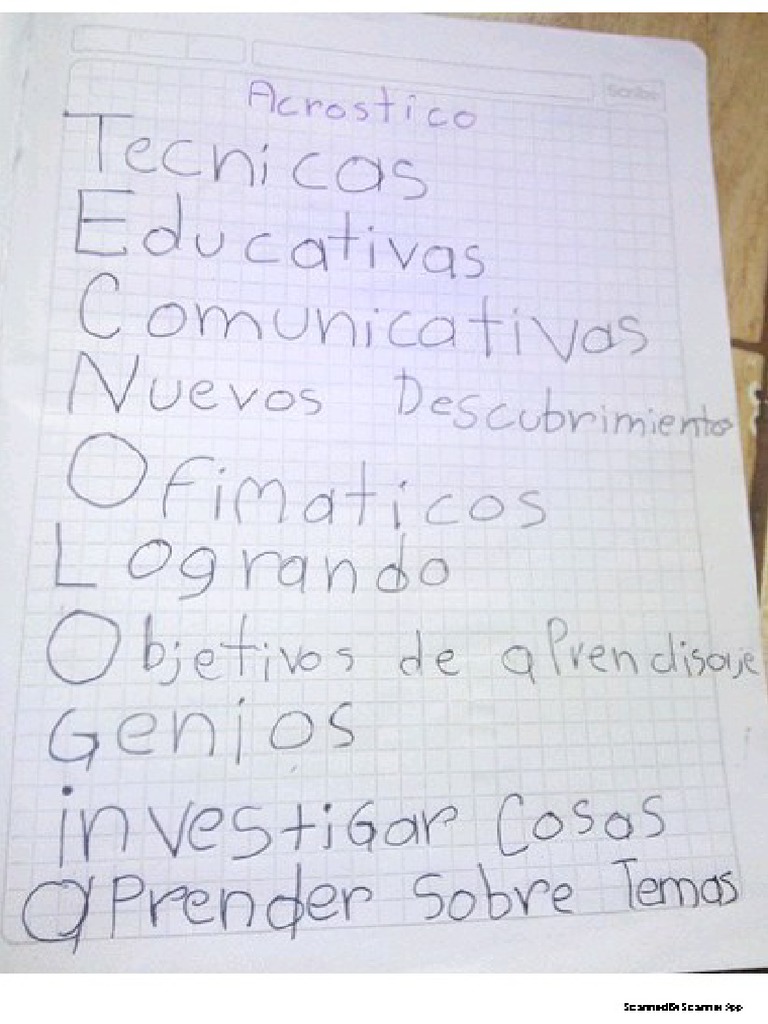 Scribe
Acrostico
Tecnicas
Educativas
Comunicativas
Nuevos Descubrimiento
Ofimaticos
Logrando
Objetivos de aPrendisaje
Genios
investiGar Cosas
aPrender Sobre Temas
Scanned By Scanner App